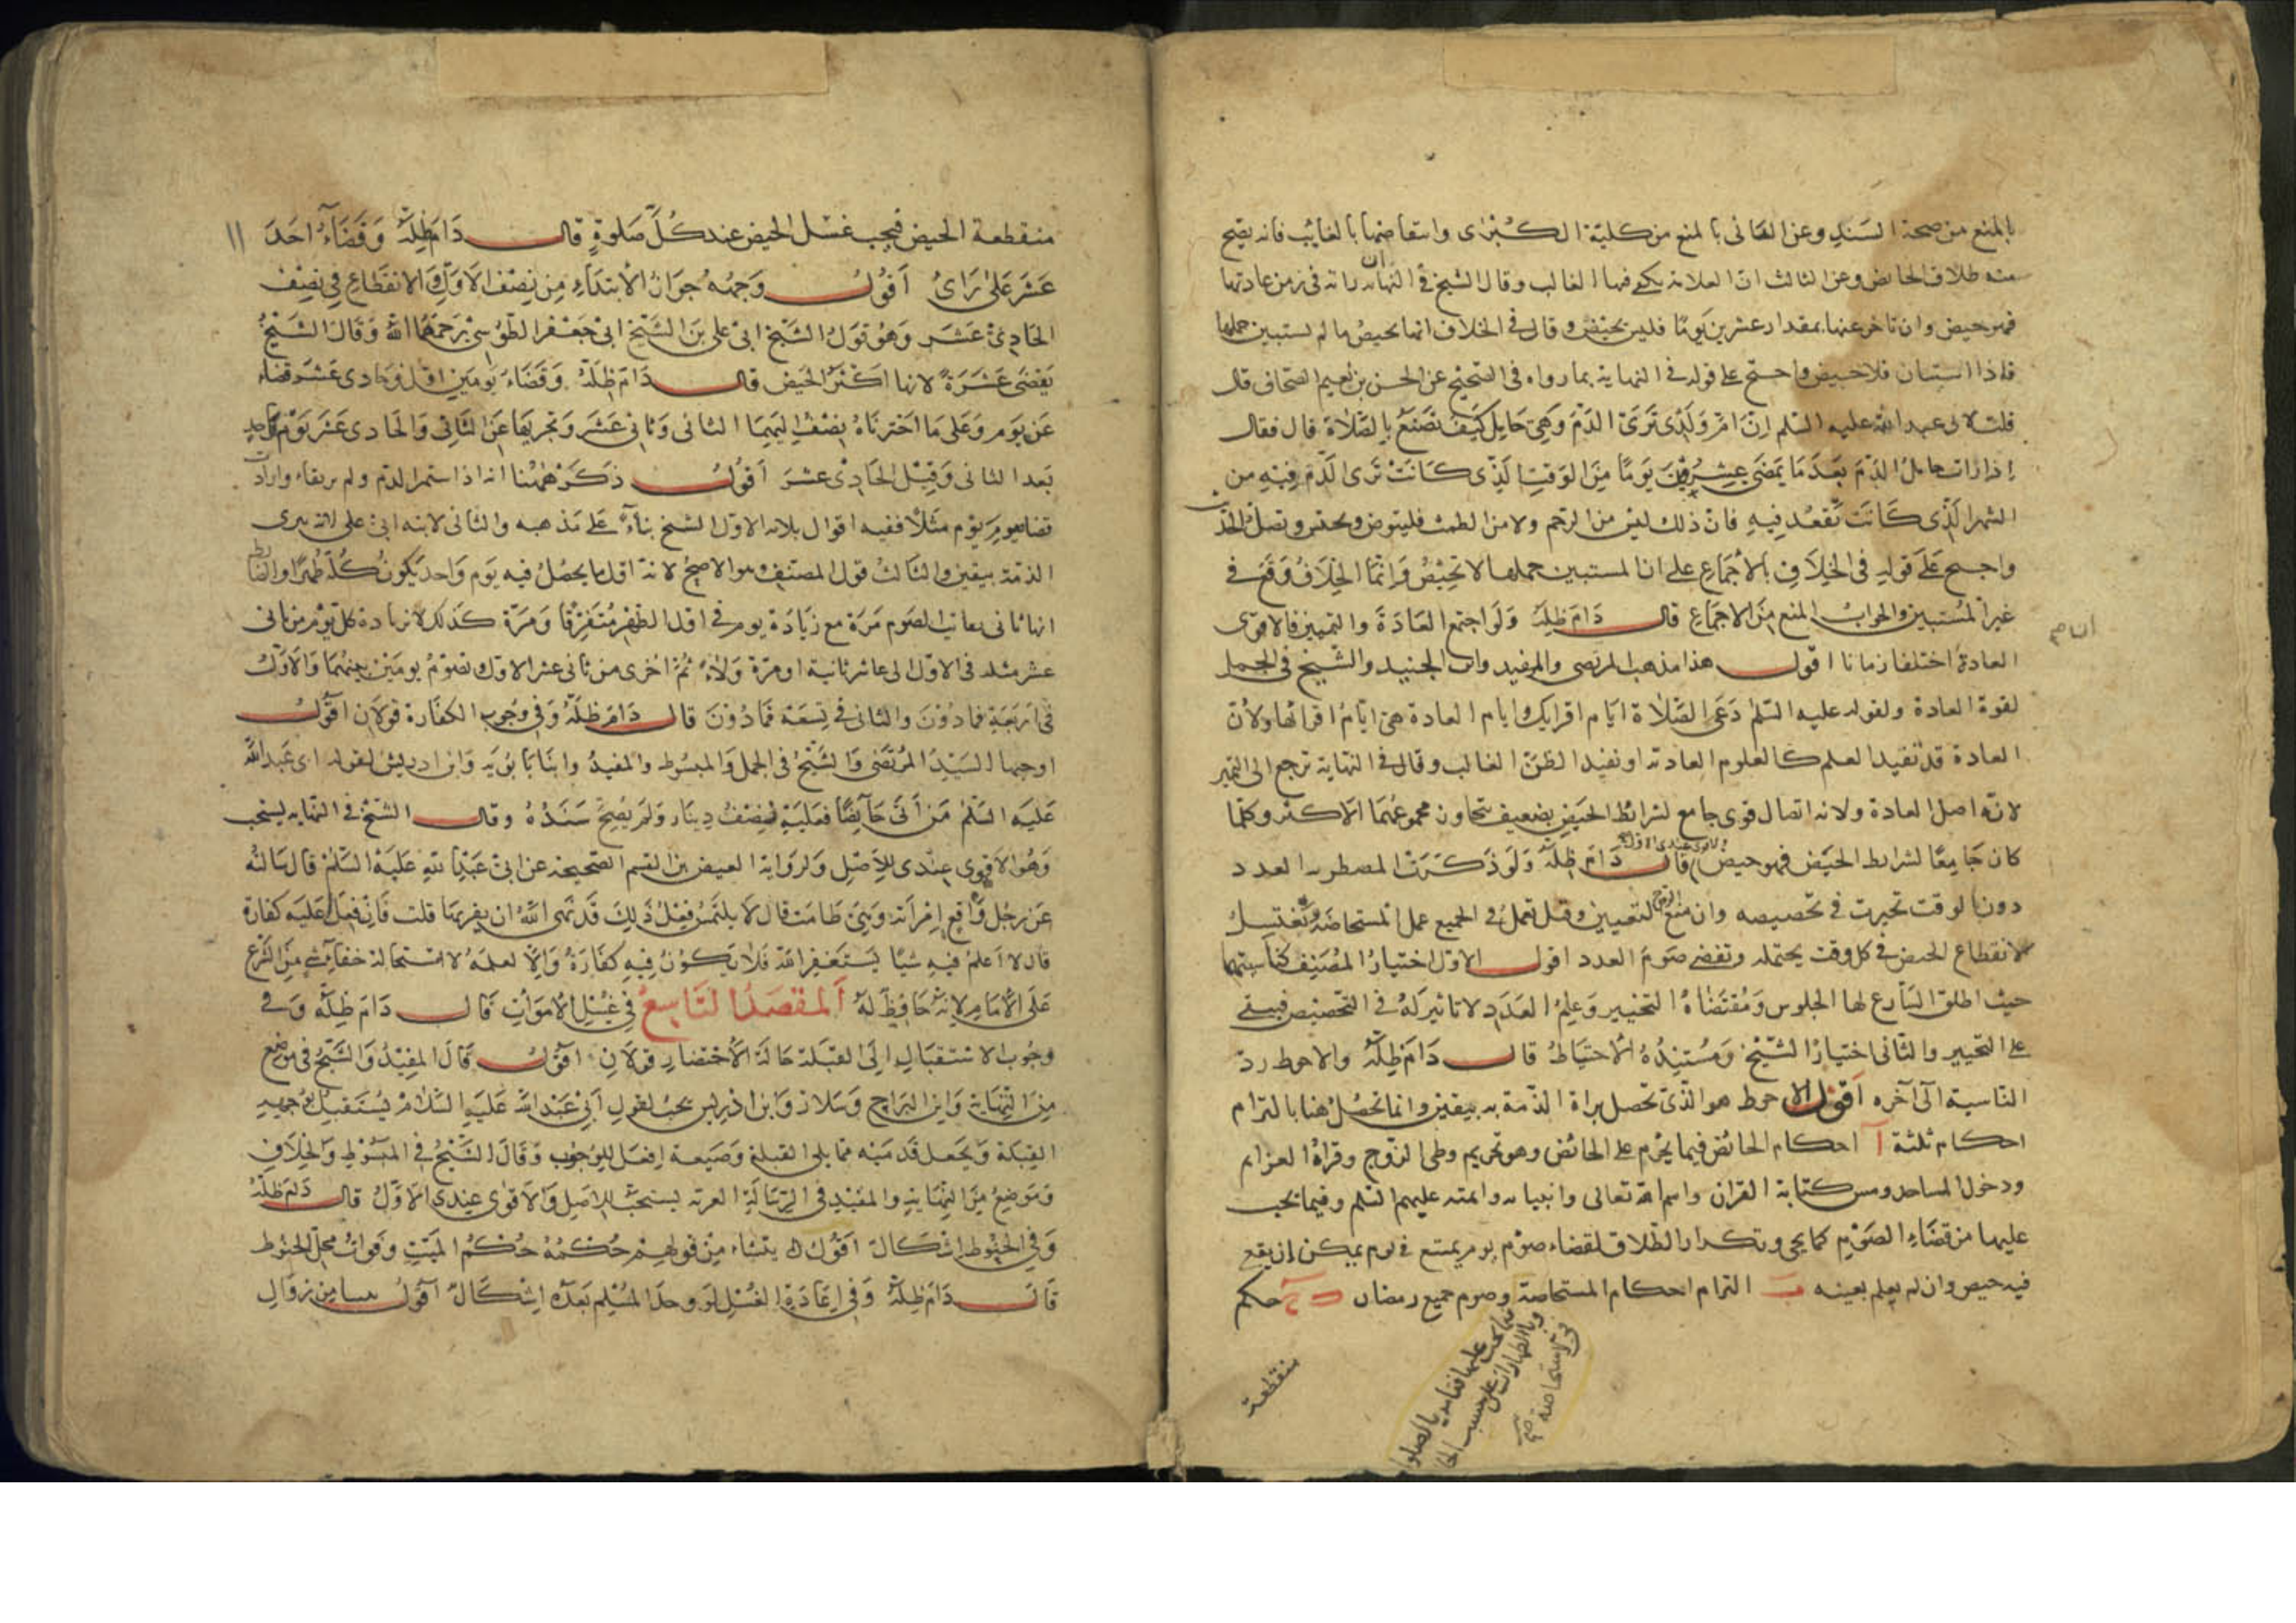 بالمنع من صحة السند وعن الثانى بالمنع من كلية الكبرى وانتقاضها بالغايب فانه يصح
منه طلاق الحايض وعن الثالث ان العلامة يكفى فيها الغالب وقال الشيخ فى النهاية ان راته فى زمن عادتها
فهو حيض وان تاخر عنها بمقدار عشرين يوما فليس بحيض وقال فى الخلاف انما تحيض ما لم يستبين حملها
فاذا استبان فلا حيض واحتج على قوله فى النهاية بما رواه فى الصحيح عن الحسن بن نعيم الصحاف قال
قلت لابى عبد الله عليه السلم ان ام ولدى ترى الدم وهى حايل كيف تصنع بالصلاة قال فقال
اذا رات حامل الدم بعد ما يمضى عشرين يوما من الوقت الذى كانت ترى الدم فيه من
الشهر الذى كانت تقعد فيه فان ذلك ليس من الرحم ولا من الطمث فليتوض وتحتشى وتصل الخبر
واحتج على قوله فى الخلاف بالاجماع على ان المستبين حملها لا تحيض وانما الخلاف وقع فى
غير المستبين والجواب المنع من الاجماع قال دام ظله ولو اجتمع العادة والتمييز فالاقوى
العادة اختلفا زمانا اقول هذا مذهب المرتضى والمفيد وابن الجنيد والشيخ فى الجمل
لقوة العادة ولقوله عليه السلم دعى الصلاة ايام اقرايك وايام العادة هى ايام اقرائها ولان
العادة قد تفيد العلم كالعلوم العادية او تفيد الظن الغالب وقال فى النهاية ترجع الى التميز
لانه اصل العادة ولانه اتصال قوى جامع لشرائط الحيض بضعيف يتجاوز مجموعهما الاكثر وكلما
كان جامعا لشرايط الحيض فهو حيض والاقوى عندى الاول قال دام ظله ولو ذكرت المضطربه العدد
دون الوقت تخيرت فى تخصيصه وان منع الزوج التعيين وقيل تعمل فى الجميع عمل المستحاضة وتغتسل
لانقطاع الحيض فى كل وقت يحتمله وتقضى صوم العدد اقول الاول اختيار المصنف
حيث اطلق الشارع لها الجلوس ومقتضاه التخيير وعلم العدد لا تاثير له فى التخصيص فيبقى
على التخيير والثانى اختيار الشيخ ومستنده الاحتياط قال دام ظله والاحوط رد
الناسية الى آخره اقول الاحوط هو الذى تحصل براة الذمة به بيقين وانما تحصل هنا بالتزام
احكام ثلثة آ احكام الحائض فيما يحرم على الحائض وهو تحريم وطى الزوج وقراة العزايم
ودخول المساجد ومس كتابة القران واسم الله تعالى وانبيائه وائمته عليهم السلم وفيما يجب
عليها من قضاء الصوم كما يجى وتكرار الطلاق لقضاء صوم يوم يمتنع فى يوم يمكن ان يقع
فيه حيض وان لم يعلم بعينه ب التزام احكام المستحاضة وصوم جميع رمضان ج حكم
منقطعة
١١
منقطعة الحيض فيجب غسل الحيض عند كل صلوة قال دام ظله وقضاء احد
عشر على راى اقول وجهه جواز الابتداء من نصف الاول والانقطاع فى نصف
الحادى عشر وهو قول الشيخ ابى على بن الشيخ ابى جعفر الطوسى رحمهما الله وقال الشيخ
يقضى عشرة لانها اكثر الحيض قال دام ظله وقضاء يومين اول وحادى عشر قضاء
عن يوم وعلى ما اخترناه يضف اليهما الثانى وثانى عشر وتجزيها عن الثانى والحادى عشر يوم واحد
بعد الثانى وقبل الحادى عشر اقول ذكر ههنا انه اذا استمر الدم ولم وارادت
قضا صوم يوم مثلا ففيه اقوال ثلاثه الاول الشيخ بناء على مذهبه والثانى لابنه ابى على لانه يبرى
الذمة بيقين والثالث قول المصنف هو الاصح لانه اقل ما يحصل فيه يوم واحد يكون كله طهرا
انها تاتى بعات الصوم مرة مع زيادة يوم فى اقل الطهر متفرقا ومرة كذلك لزيادة كل يوم من ثانى
عشر مثله فى الاول الى عاشر ثانية او مرة ولاء ثم اخرى من ثانى عشر الاول تصوم يومين بينهما والاول
فى اربعة فما دون والثانى فى تسعة فما دون قال دام ظله وفى وجوب الكفارة قولان اقول
اوجبها السيد المرتضى والشيخ فى الجمل والمبسوط والمفيد وابنا بابويه وابن ادريس لقول ابى عبد الله
عليه السلم من اتى حائضا فعليه نصف دينار ولم يصح سنده وقال الشيخ فى النهايه يستحب
وهو الاقوى عندى للاصل ولرواية العيص بن القسم الصحيحة عن ابى عبد الله عليه السلم قال سالته
عن رجل واقع امراته وهى طامث قال لا يلتمس فعل ذلك قد نهى الله ان يقربها قلت فان فعل اعليه كفارة
قال لا اعلم فيه شيا يستغفر الله فلا يكون فيه كفارة والا لعلمه لاستحالة خفاء شى من الشرع
على الامام لانه حافظ له المقصد التاسع فى غسل الاموات قال دام ظله وفى
وجوب الاستقبال الى القبلة حالة الاحتضار قولان اقول قال المفيد والشيخ فى موضع
من النهاية وابن البراج وسلار وابن ادريس يجب لقول ابى عبد الله عليه السلام يستقبل بوجهه
القبلة ويجعل قدميه مما يلى القبلة وصيغة افعل للوجوب وقال الشيخ فى المبسوط والخلاف
وموضع من النهاية والمفيد فى الرسالة العزية يستحب للاصل والاقوى عندى الاول قال دام ظله
وفى الحنوط اشكال اقول ينشاء من قولهم حكمه حكم الميت وفوات محل الحنوط
قال دام ظله وفى اعادة الغسل لو وجد المسلم بعده اشكال اقول ينشا من زوال